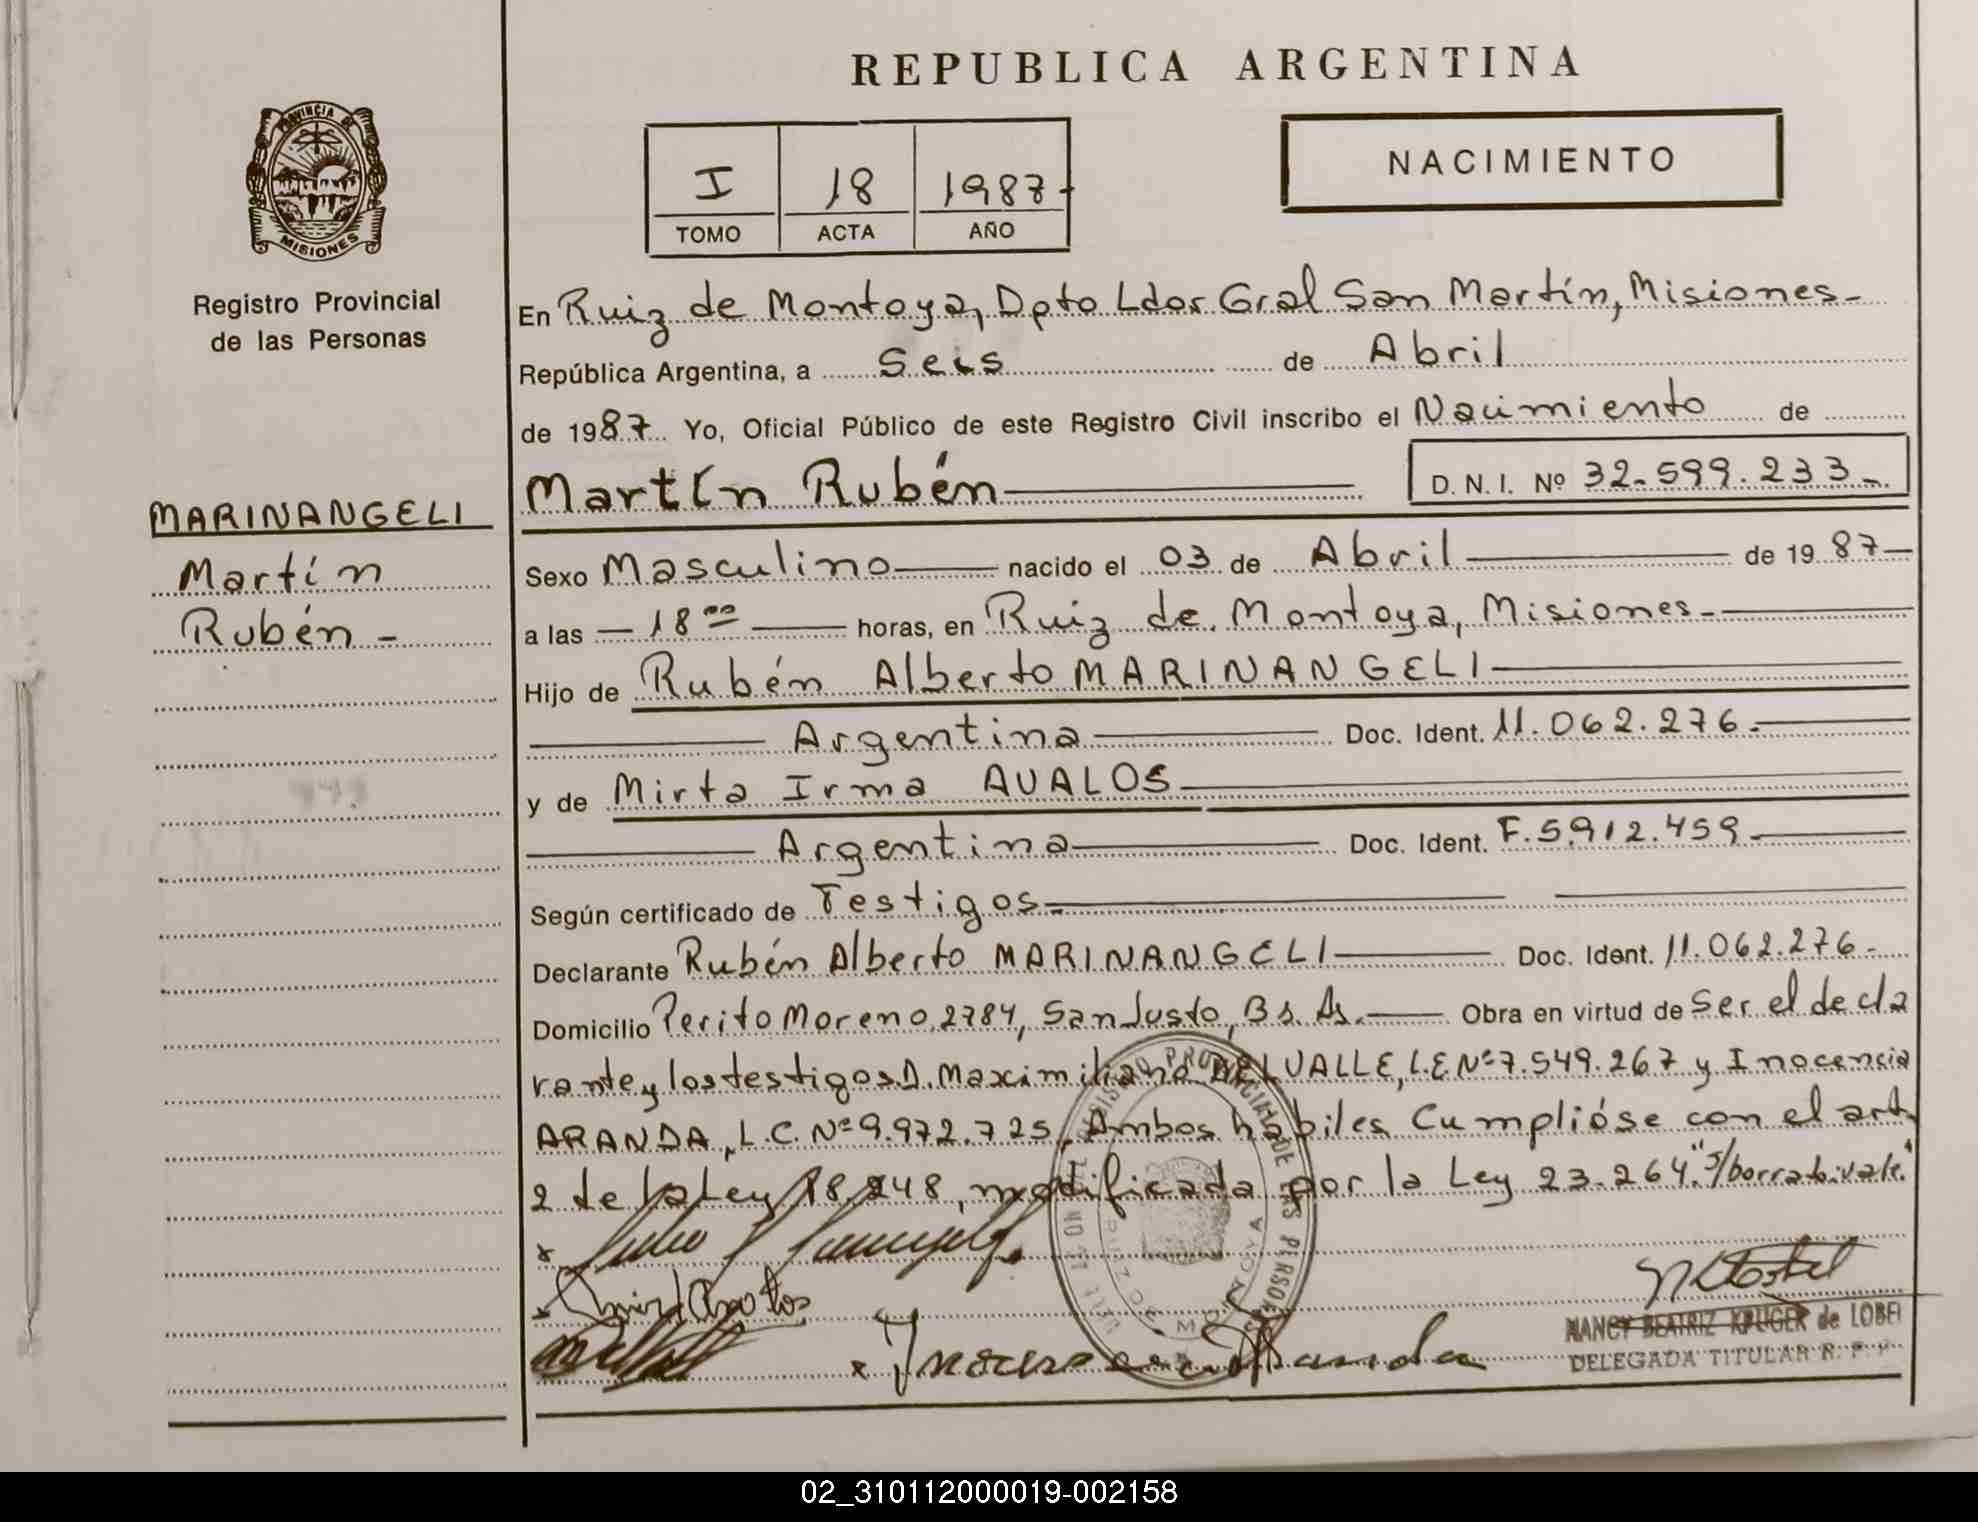 REPUBLICA ARGENTINA
PROVINCIA DE
MISIONES
Registro Provincial
de las Personas
I 18 1987
TOMO ACTA AÑO
NACIMIENTO
En Ruiz de Montoya, Dpto Ldor Gral San Martín, Misiones-
República Argentina, a Seis de Abril
de 1987 Yo, Oficial Público de este Registro Civil inscribo el Nacimiento de
MARINANGELI
Martín
Rubén -
Martín Rubén D.N.I. Nº 32.599.233-
Sexo Masculino nacido el 03 de Abril de 1987
a las 18 00 horas, en Ruiz de Montoya, Misiones-
Hijo de Rubén Alberto MARINANGELI
Argentina Doc. Ident. 11.062.276.
y de Mirta Irma AVALOS
Argentina Doc. Ident. F.5.912.459
Según certificado de Testigos
Declarante Rubén Alberto MARINANGELI Doc. Ident. 11.062.276-
Domicilio Perito Moreno 2784, San Justo, Bs. As. Obra en virtud de Ser el decla
rante y los testigos D. Maximiliano DEL VALLE, L.E Nº 7.549.267 y Inocencia
ARANDA, L.C. Nº 9.972.725, Ambos hábiles Cumplióse con el art.
2 de la Ley 18.248, modificada por la Ley 23.264. "s/borrado: vale."
Inocencia Aranda
NANCY BEATRIZ KRUGER de LOBEL
DELEGADA TITULAR R. P. P.
02_310112000019-002158